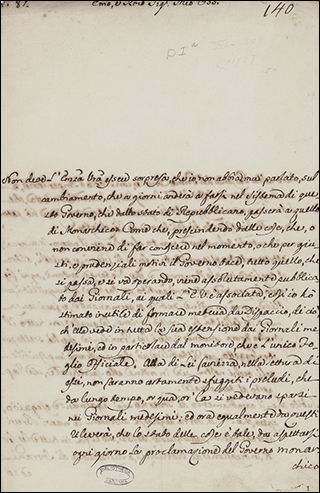 N. 87.
Emo, e Rmo Sigr. Mio Oss.
140
Non deve L'Emza Vra essere sorpresa, che io non abbia mai parlato, sul
cambiamento, che a giorni andrà a farsi nel sistema di que-
sto Governo, che dallo stato di Repubblicano, passerà a quello
di Monarchico. Come che, prescindendo dalle cose, che, o
non conviene di far conoscere nel momento, o che per giu-
sti, e prudenziali motivi il Governo tace, tutto quello, che
si passa, e si va operando, viene assolutamente pubblica-
to dai Giornali, ai quali L'E. V. è associata; così io hò
stimato inutile di formare materia da Dispaccio, di ciò
ch'Ella vede in tutta la sua estensione dai Giornali me-
desimi, ed in particolare dal monitore che è l'unico Fo-
glio Officiale. Alla di Lei saviezza, nella lettura di
essi, non saranno certamente sfuggiti i preludi, che
da lungo tempo, or qua, or là si vedevano sparsi
nei Giornali medesimi, ed ora egualmente da questi
rileverà, che lo stato delle cose è tale, da aspettarsi
ogni giorno la proclamazione del Governo monar-
chico